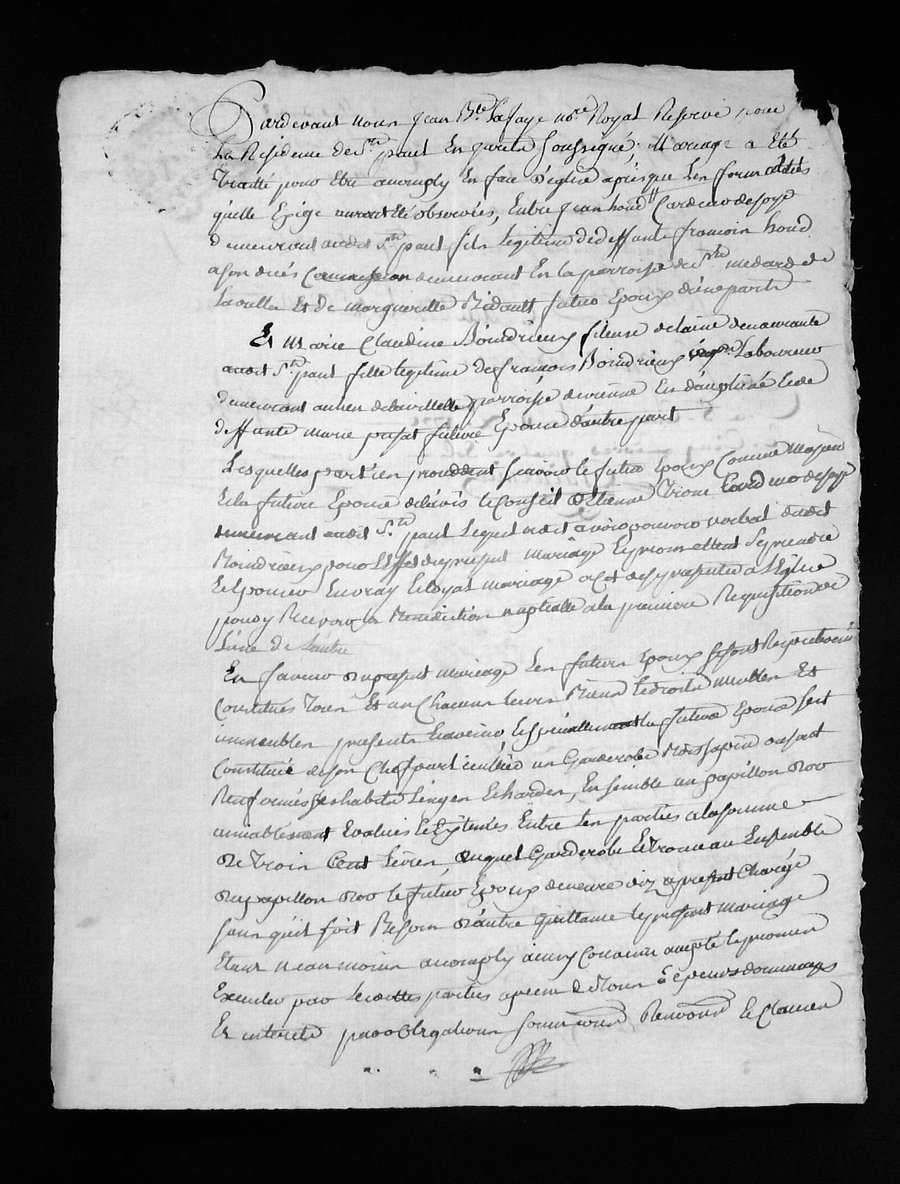 Pardevant nous Jean Bte Lafaye nore Royal Reservé pour
La Residence de St paul En jarets Soussigné, Mariage a Eté
Traité pour Etre accomply En face d'Eglise apresque Les formalités
qu'elle Exige auront Eté observées, Entre Jean houd Cardeur de soye
demeurant audit St paul fils Legitime de deffunt francois houd
a son décés demeurant En la parroisse de St medard de
Lavalla Et de margueritte futur Epoux d'une part
Et Marie Claudine Boindrieux fileuse de laine demeurante
audit St paul fille legitime de francois Boindrieux Laboureur
demeurant au lieu de parroisse de vienne En dauphiné Et de
deffunte marie future Epouse d'autre part
Lesquelles parties procedent scavoir le futur Epoux Comme Majeur
Et la future Epouse de l'avis Et Conseil d'Etienne Cardeur de soye
demeurant audit St paul Lequel a dit avoir pouvoir verbal dudit
Boindrieux pour L'effet du present mariage Et promettent Se prendre
Et Epouser En vray Et loyal mariage a cet effet se presenter a L'Eglise
pour y Recevoir la Benediction nuptialle a la premiere Requisition de
L'une de L'autre
En faveur du present mariage Les futurs Epoux se sont Respectivement
Constitués Tous Et un Chacun Leurs Biens Et droits Meubles Et
immeubles presents Et avenir Et specialement la future Epouse sest
Constitué de son Chef particulier un Garderobe Bois sapin ou sont
Renfermés ses habits Linges Et hardes, Ensemble un papillon d'or
amiablement Evalués Et Estimés Entre Les parties a la somme
De Trois Cent Livres, duquel Garderobe Et Trousseau Ensemble
du papillon d'or le futur Epoux demeure dez a present Chargé
sans qu'il soit Besoin d'autre quittance le present mariage
Etant neanmoins accomply ainsy Convenu accepté Et promis
Executer par Lesdittes parties a peine de Tous depens dommages
Et interets par obligations soumissions Renvoys Et Clauses